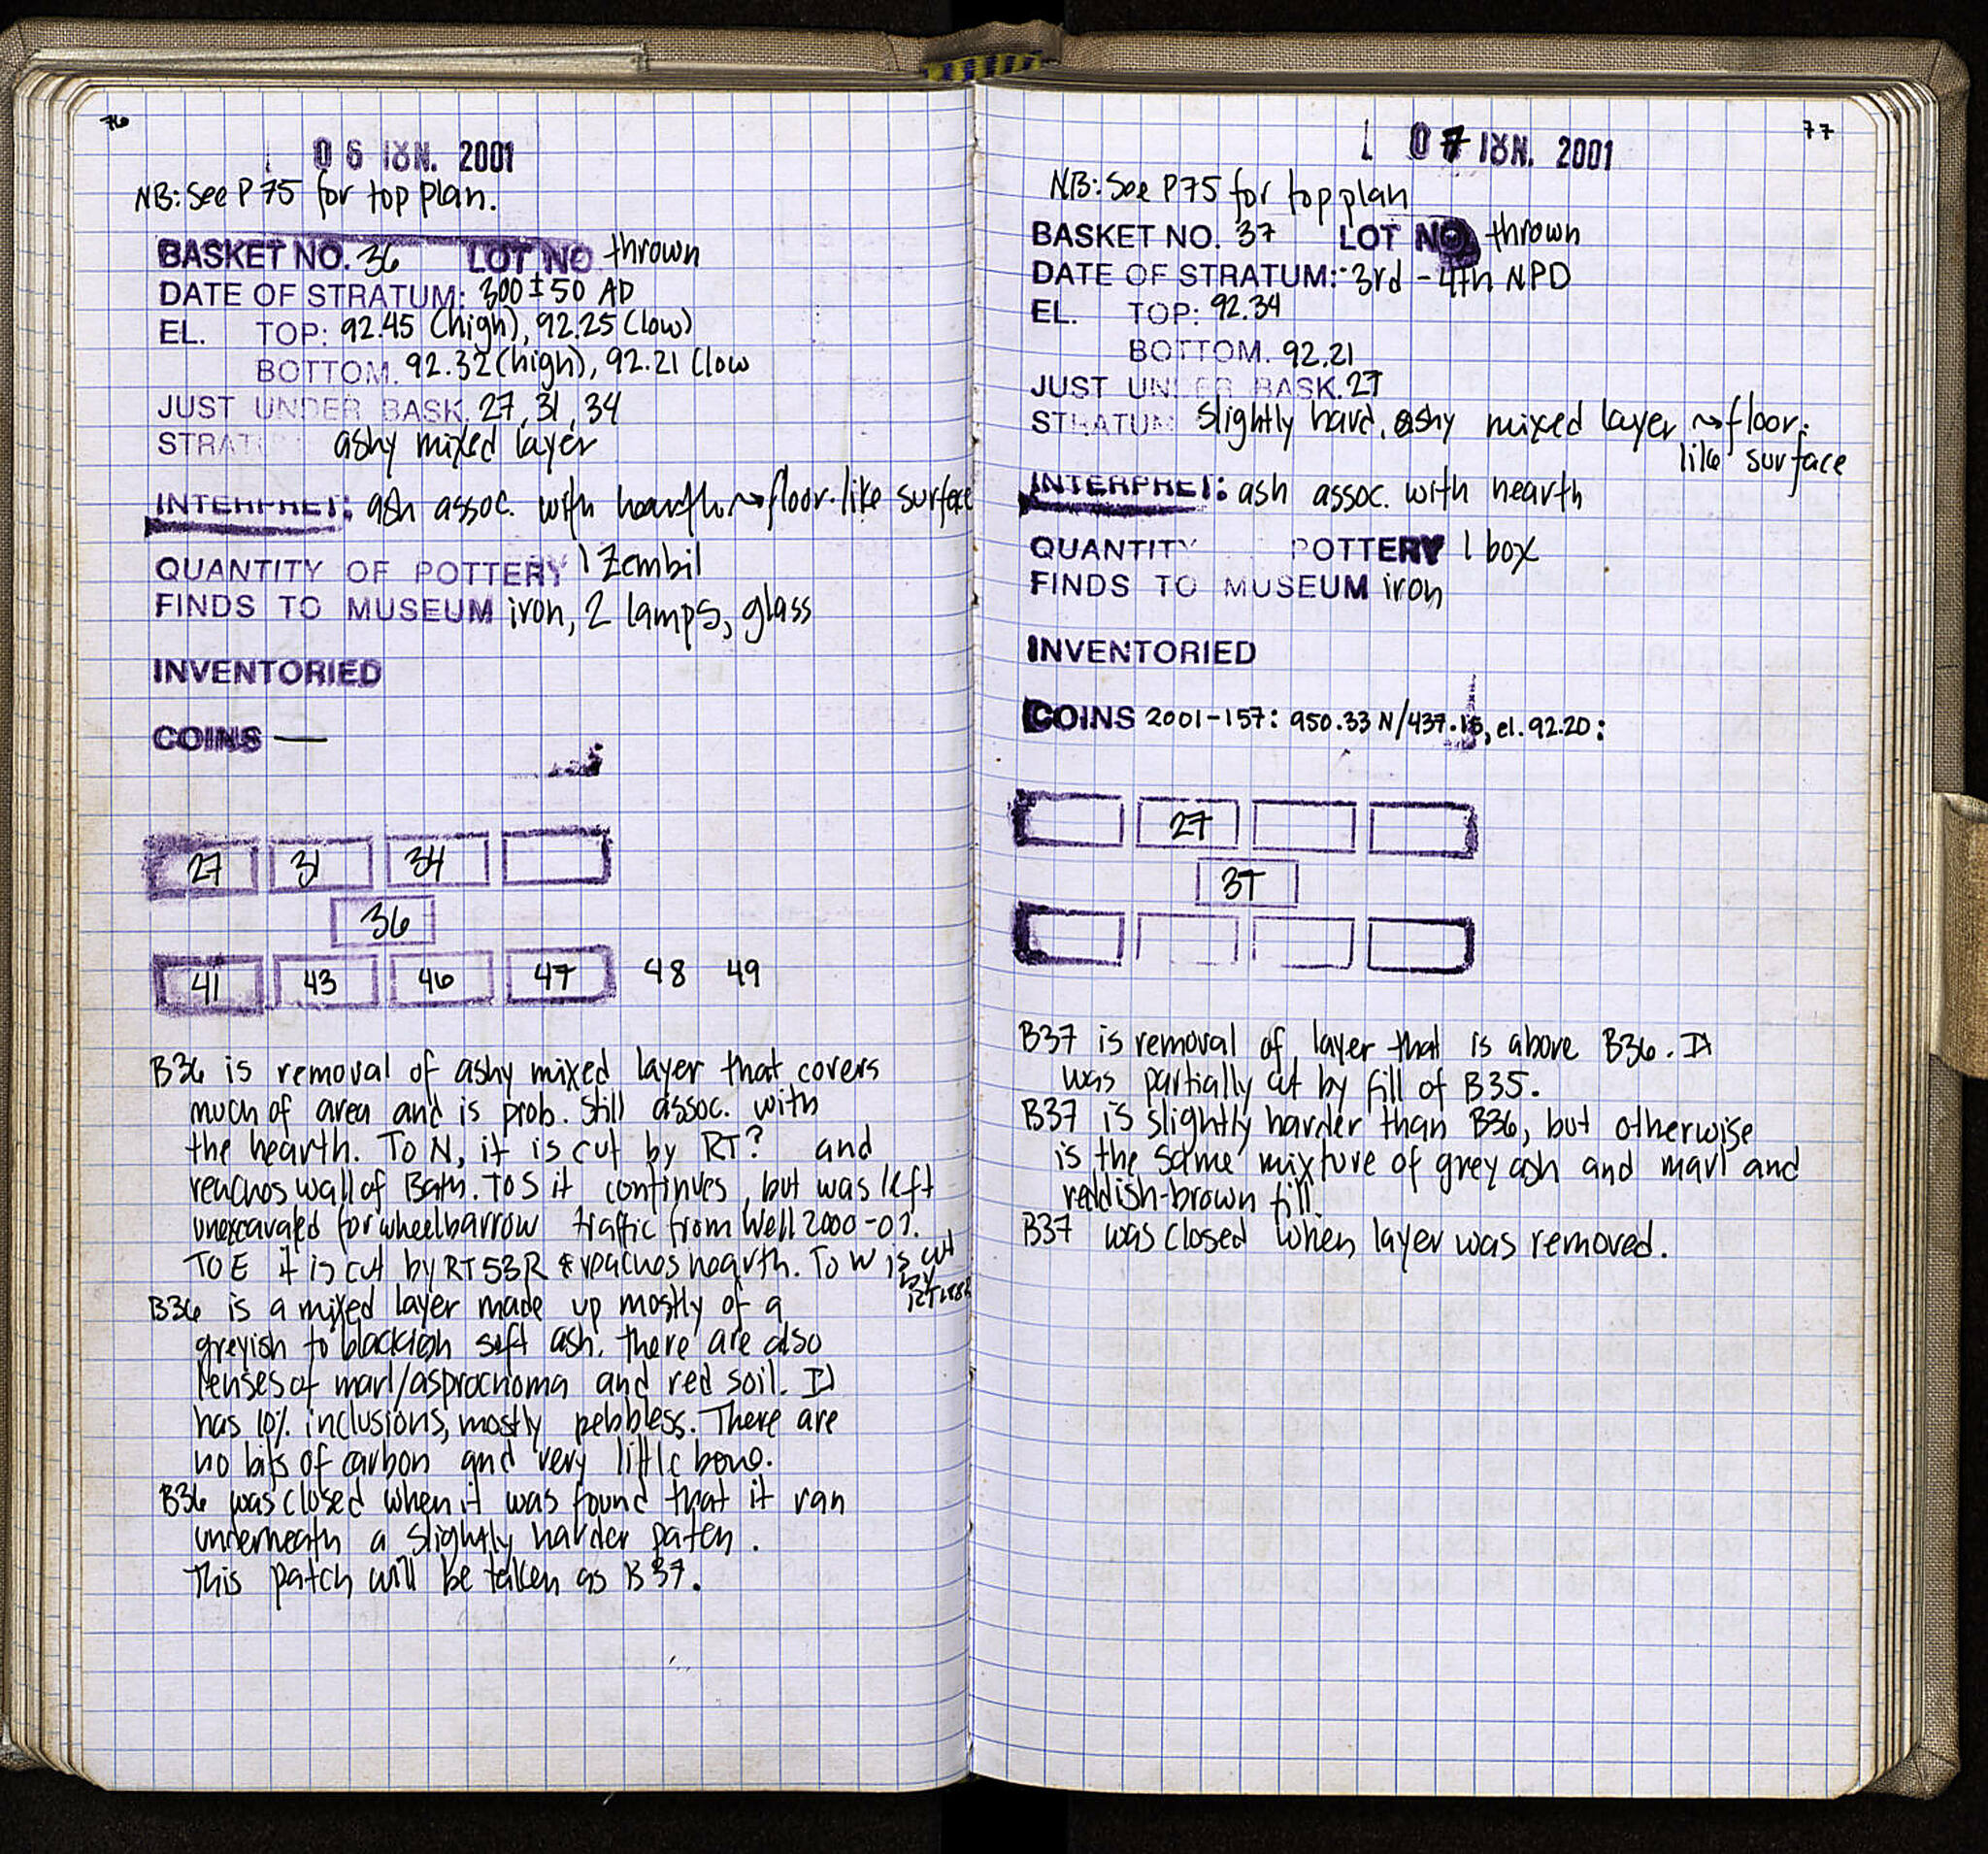 76
06 ΙΟΥΝ. 2001
NB: See P 75 for top plan.
BASKET NO. 36 LOT NO thrown
DATE OF STRATUM: 300±50 AD
EL. TOP: 92.45 (high), 92.25 (low)
BOTTOM. 92.32 (high), 92.21 (low
JUST UNDER BASK. 27, 31, 34
STRAT ashy mixed layer
INTERPRET: ash assoc. with hearth ~> floor-like surface
QUANTITY OF POTTERY 1 Zembil
FINDS TO MUSEUM iron, 2 lamps, glass
INVENTORIED
COINS —
27 31 34
36
41 43 46 47 48 49
B36 is removal of ashy mixed layer that covers
much of area and is prob. still assoc. with
the hearth. To N, it is cut by RT? and
reaches wall of Bath. To S it continues, but was left
unexcavated for wheelbarrow traffic from Well 2000-01.
To E it is cut by RT53R & reaches hearth. To W is cut
by
B36 is a mixed layer made up mostly of a
greyish to blackish soft ash. there are also
lenses of marl/asprochoma and red soil. It
has 10% inclusions, mostly pebbless. There are
no bits of carbon and very little bone.
B36 was closed when it was found that it ran
underneath a slightly harder patch.
This patch will be taken as B37.
77
07 ΙΟΥΝ. 2001
NB: See P 75 for top plan
BASKET NO. 37 LOT NO thrown
DATE OF STRATUM: 3rd - 4th NPD
EL. TOP: 92.34
BOTTOM. 92.21
JUST UNDER BASK. 27
STRATUM slightly hard, ashy mixed layer ~> floor-
like surface
INTERPRET: ash assoc. with hearth
QUANTITY POTTERY 1 box
FINDS TO MUSEUM iron
INVENTORIED
COINS 2001-157: 950.33 N/437.15, el. 92.20:
27
37
B37 is removal of layer that is above B36. It
was partially cut by fill of B35.
B37 is slightly harder than B36, but otherwise
is the same mixture of grey ash and marl and
reddish-brown fill.
B37 was closed when layer was removed.